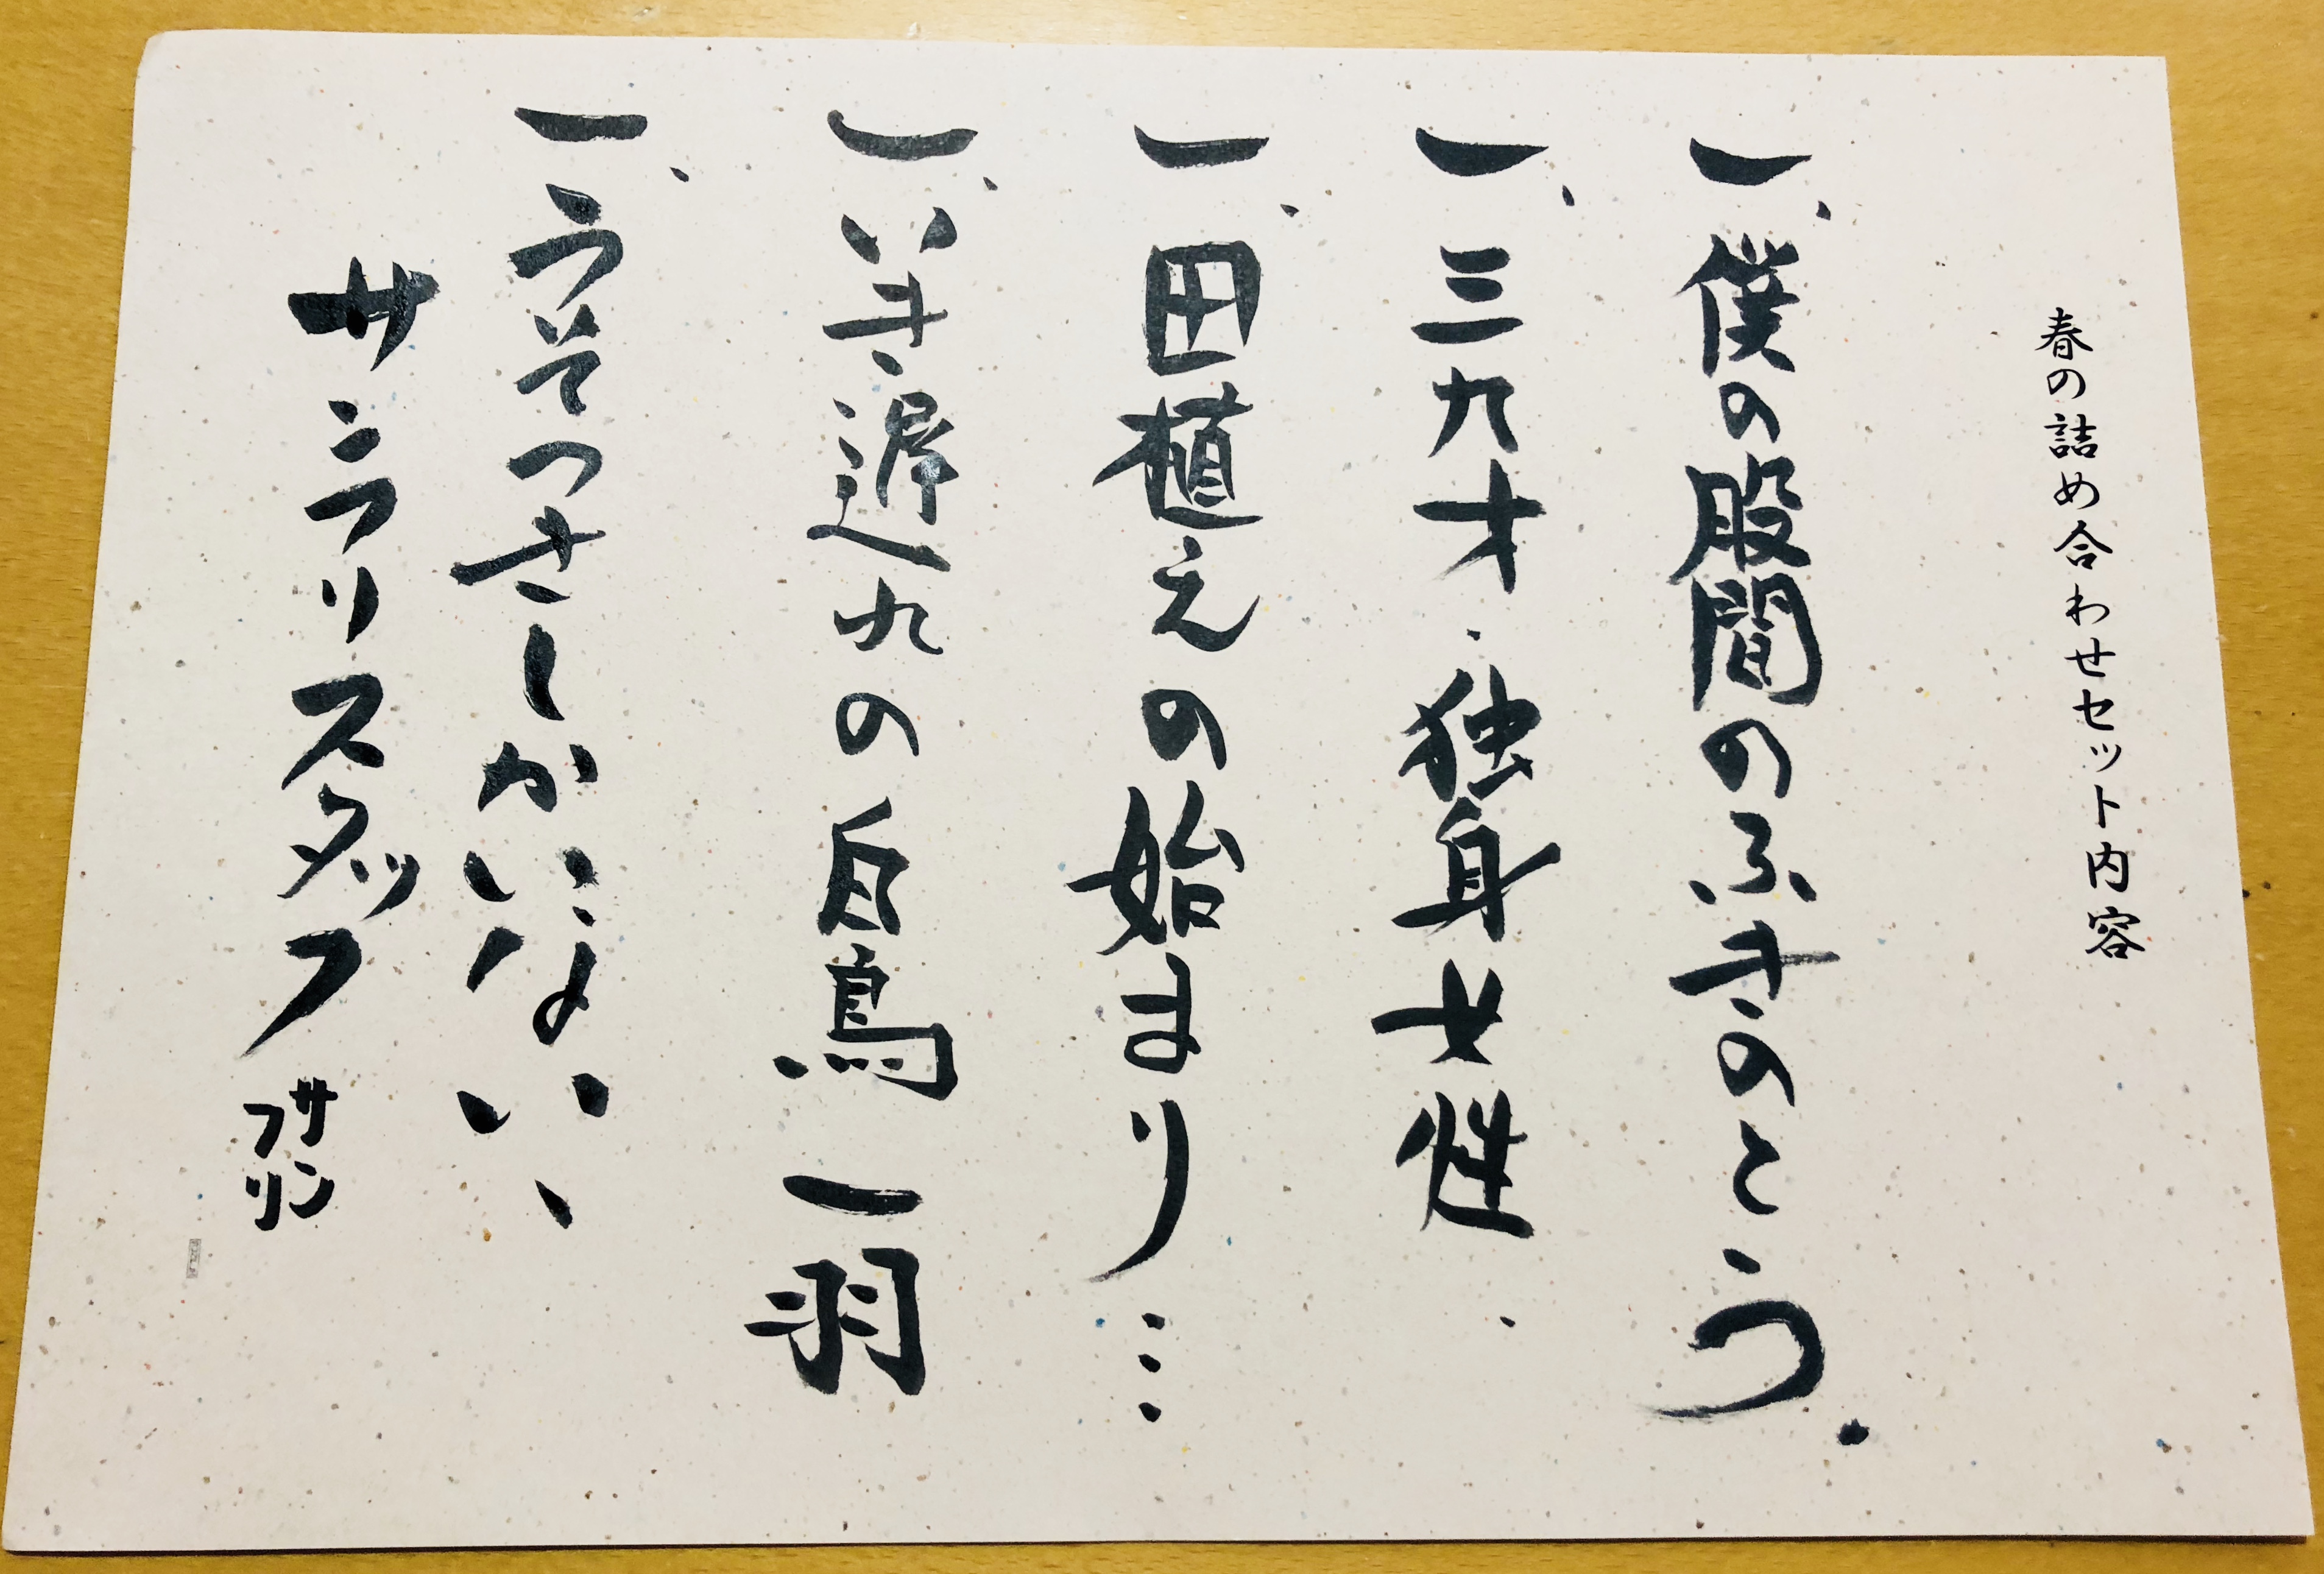 春の詰め合わせセット内容
一、僕の股間のふきのとう。
一、三九才・独身女性.
一、田植えの始まり…
一、いき遅れの白鳥一羽
一、うそつきしかいない、
サンフリスタッフ
サン
フリ